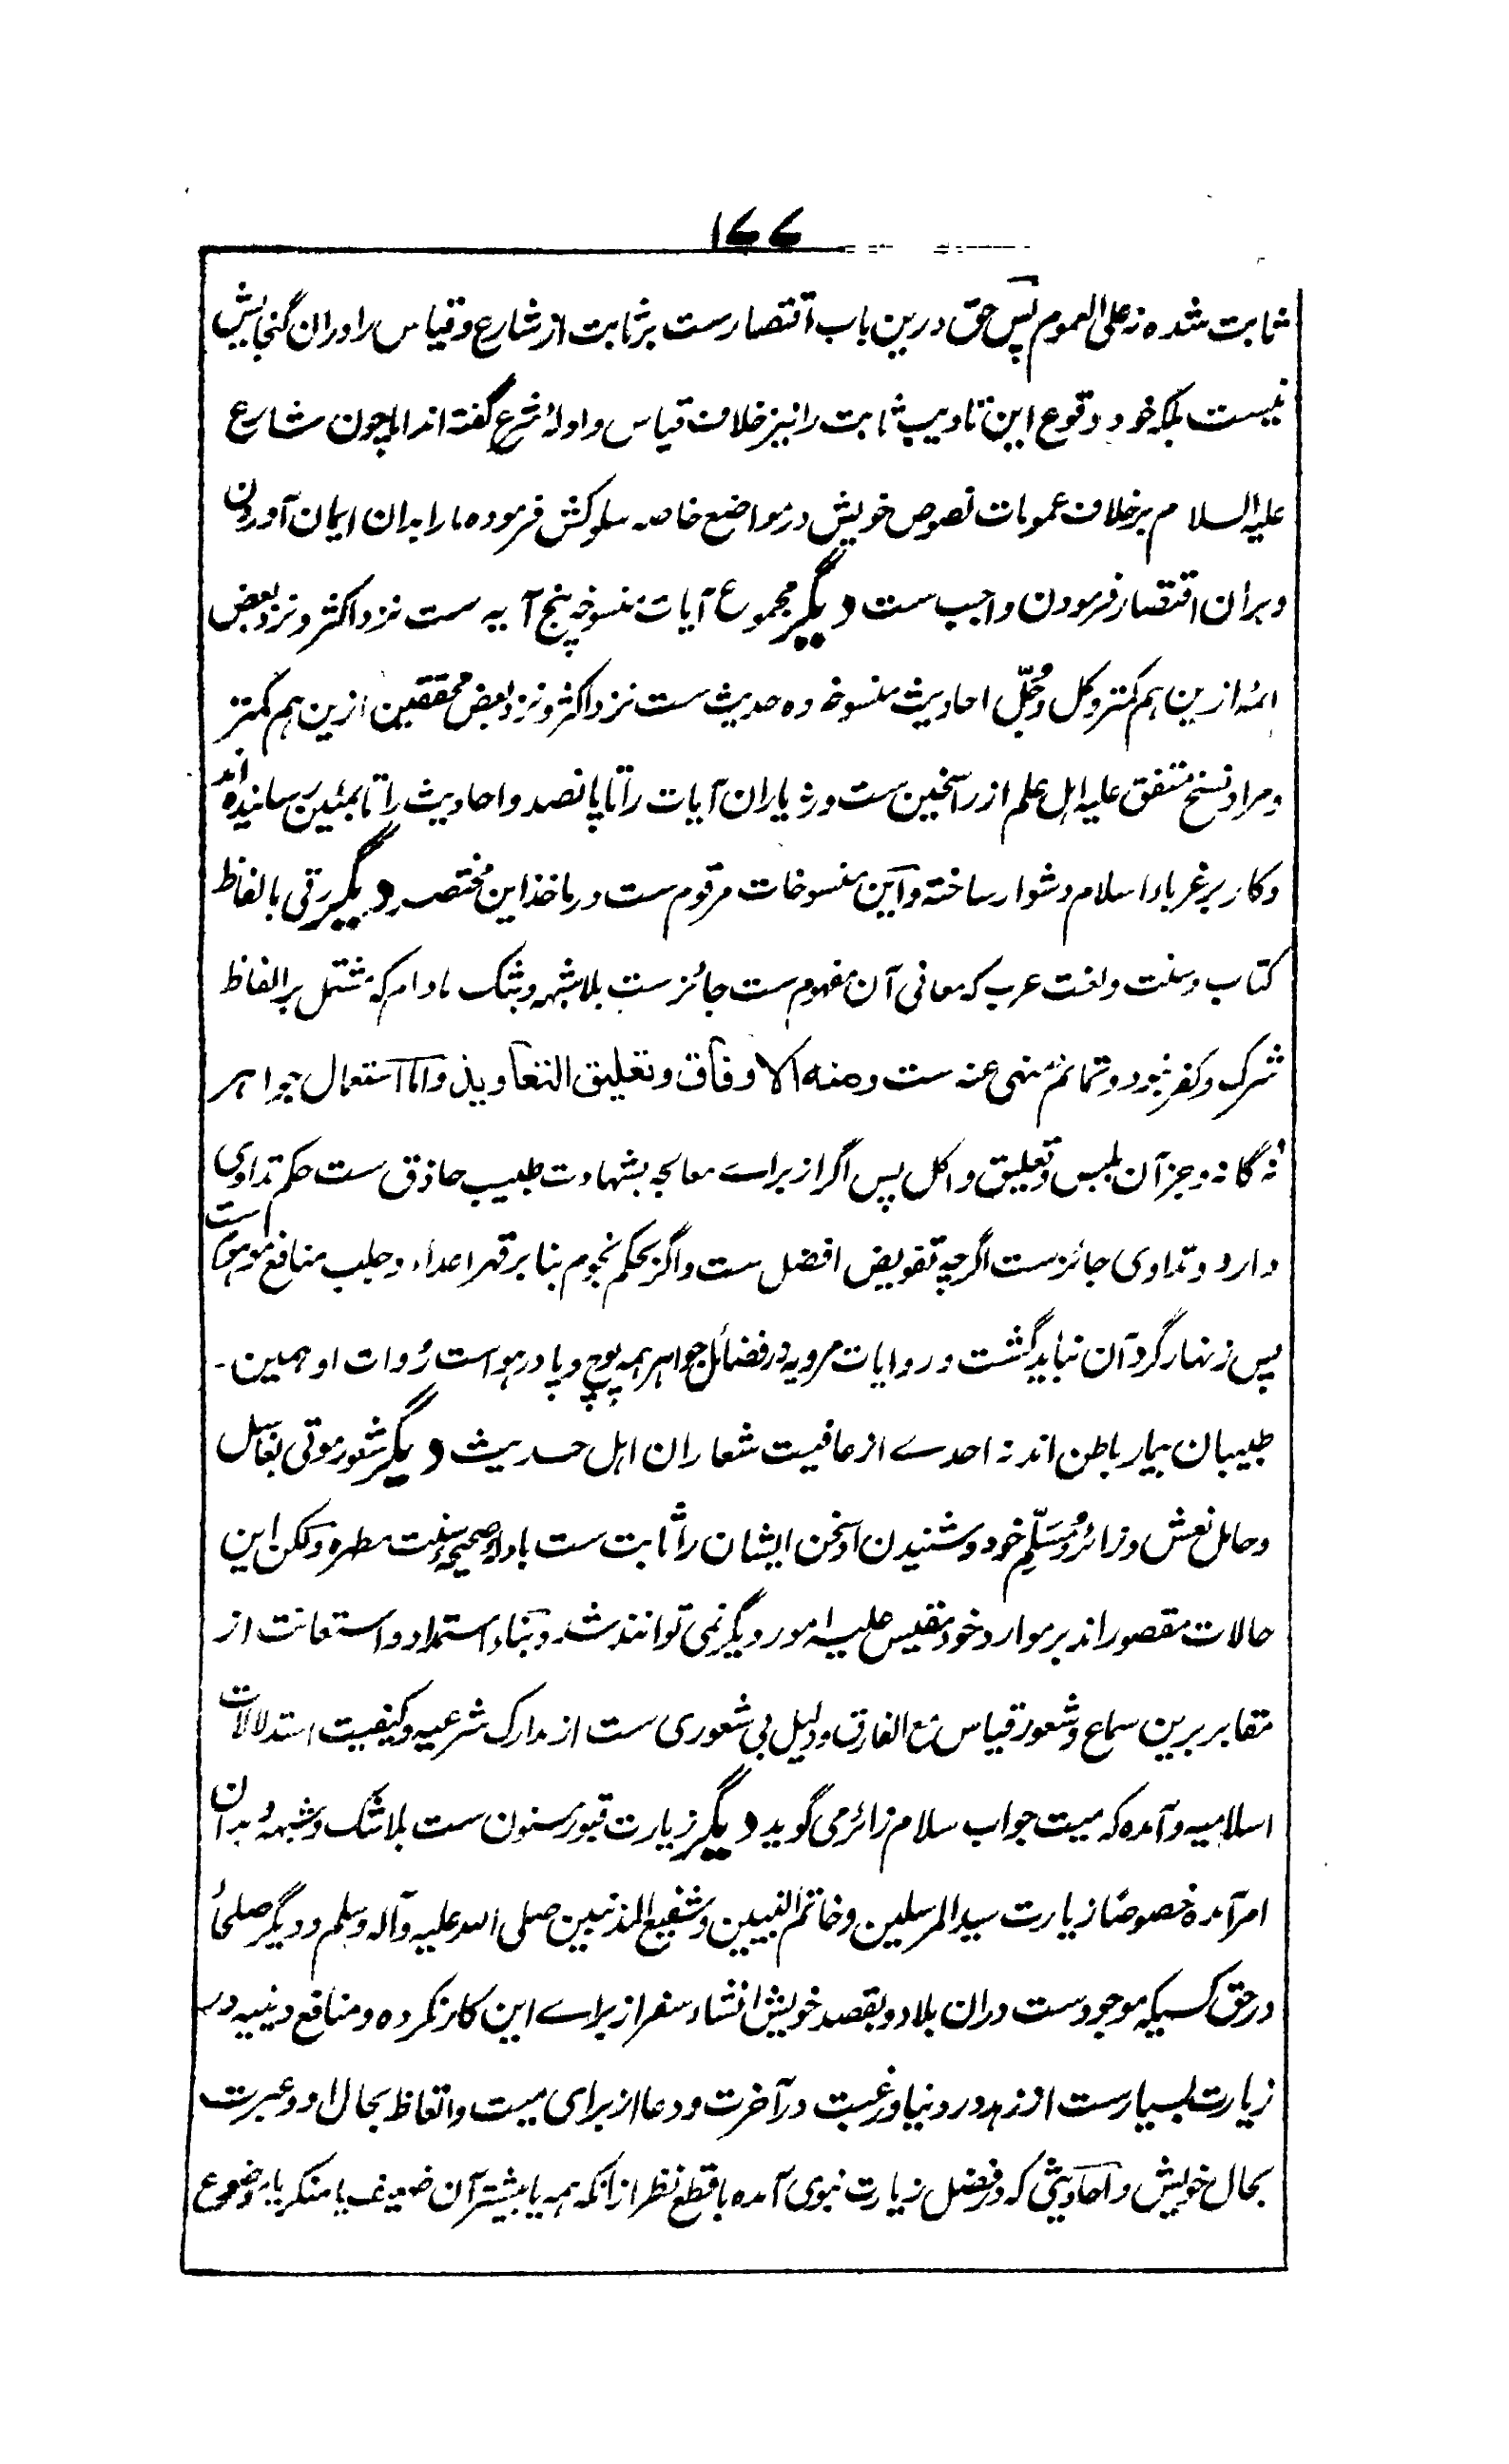 ۱۷۷
ثابت شده نه علی العموم پس حق درین باب اقتصارست بر ثابت از شارع و قیاس را دران گنجایش
نیست بلکه خود وقوع این تادیب ثابت را نیز خلاف قیاس و ادلهٔ شرع گفته اند اما چون شارع
علیه السلام بر خلاف عمومات نصوص خویش در مواضع خاصه سلوکش فرموده ما را بدان ایمان آوردن
و بران اقتصار فرمودن واجب ست دیگر مجموع آیات منسوخه پنج آیه ست نزد اکثر و نزد بعض
ائمه ازین هم کمتر و کل و جُلّ احادیث منسوخه ده حدیث ست نزد اکثر و نزد بعض محققین ازین هم کمتر
و مراد نسخ متفق علیه اهل علم از راسخین ست ورنه یاران آیات را تا پانصد و احادیث را تا بمئین رسانیده اند
و کار بر غرباء اسلام دشوار ساخته و این منسوخات مرقوم ست در ماخذ این مختصر دیگر رقی بالفاظ
کتاب و سنت و لغت عرب که معانی آن مفهوم ست جائز ست بلا شبهه و شک مادام که مشتمل بر الفاظ
شرک و کفر نبود و تمائم منهی عنه ست ومنه الاوفاق وتعلیق التعاویذ و اما استعمال جواهر
نه گانه و جز آن بلبس و تعلیق و اکل پس اگر از براے معالجه بشهادت طبیب حاذق ست حکم تداوی
دارد و تداوی جائز ست اگرچه تفویض افضل ست و اگر بحکم نجوم بنا بر قهر اعداء و جلب منافع موهوم ست
پس زنهار گرد آن نباید گشت و روایات مرویه در فضائل جواهر همه پوچ و پا در هواست رُوات او همین -
طبیبان بیمار باطن اند نه احدے از عافیت شعاران اهل حدیث دیگر شعور موتی بغاسل
و حامل نعش و زائر و مُسَلِّم خود و شنیدن او سخن ایشان را ثابت ست بادلهٔ صحیحهٔ سنت مطهره ولکن این
حالات مقصور اند بر موارد خود مقیس علیه امور دیگر نمی توانند شد و بناء استمداد و استعانت از
مقابر برین سماع و شعور قیاس مع الفارق و دلیل بی شعوری ست از مدارک شرعیه و کیفیت استدلالات
اسلامیه و آمده که میت جواب سلام زائر می گوید دیگر زیارت قبور مسنون ست بلا شک و شبهه و بدان
امر آمده خصوصاً زیارت سید المرسلین و خاتم النبیین و شفیع المذنبین صلی الله علیه وآله وسلم و دیگر صلحا
در حق کسیکه موجود ست دران بلاد و بقصد خویش انشاء سفر از براے این کار نکرده و منافع دینیه در
زیارت بسیارست از زهد در دنیا و رغبت در آخرت و دعا از برای میت و اتعاظ بحال او و عبرت
بحال خویش و احادیثی که در فضل زیارت نبوی آمده با قطع نظر ازانکه همه یا بیشتر آن ضعیف یا منکر یا موضوع